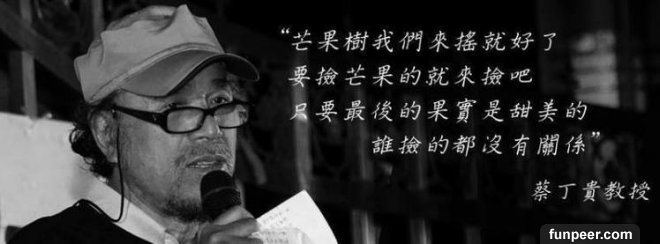 “芒果樹我們來搖就好了
要撿芒果的就來撿吧
只要最後的果實是甜美的
誰撿的都沒有關係”
蔡丁貴教授
funpeer.com